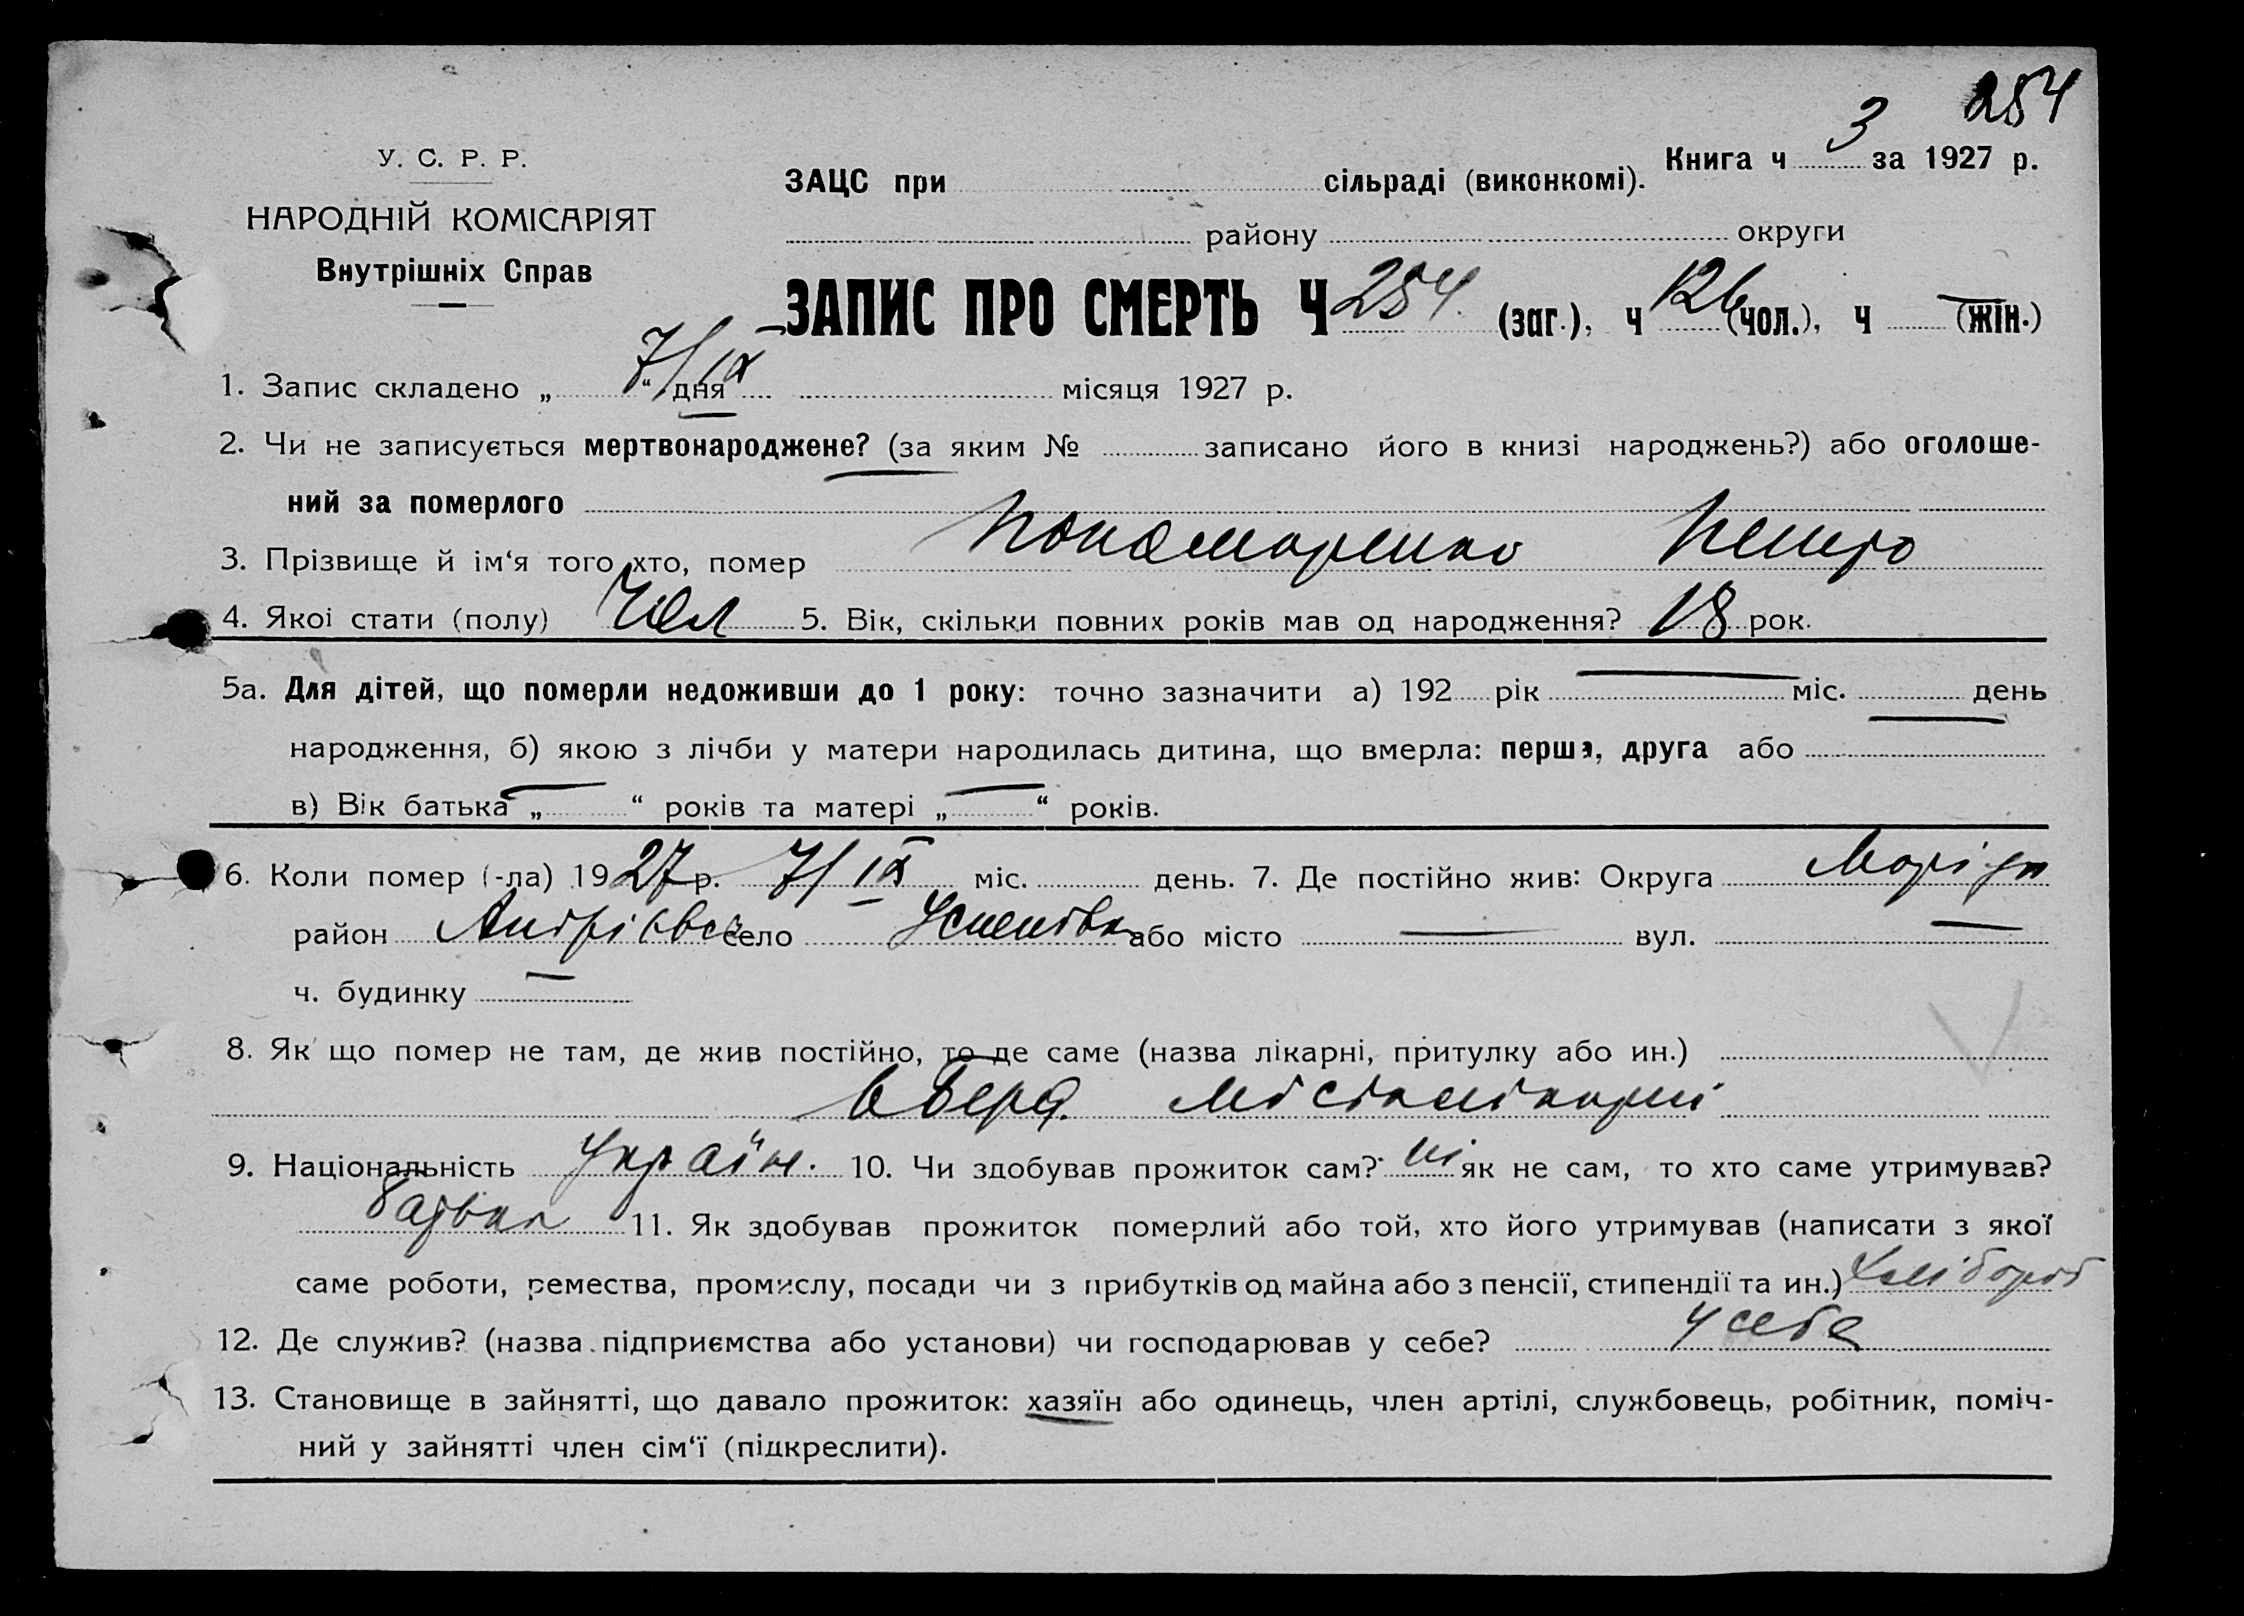 254
У. С. Р. Р.
НАРОДНІЙ КОМІСАРІЯТ
Внутрішніх Справ
Книга ч 3 за 1927 р.
ЗАЦС при сільраді (виконкомі).
району округи
ЗАПИС ПРО СМЕРТЬ Ч 254 (заг.), ч 126 (чол.), ч — (жін.)
1. Запис складено „ 7/IX “ дня місяця 1927 р.
2. Чи не записується мертвонароджене? (за яким № записано його в книзі народжень?) або оголоше-
ний за померлого —
3. Прізвище й ім‘я того хто, помер Пономаренко Петро
4. Якої стати (полу) Чол 5. Вік, скільки повних років мав од народження? 18 рок.
5а. Для дітей, що померли недоживши до 1 року: точно зазначити а) 192 рік — міс. день
народження, б) якою з лічби у матери народилась дитина, що вмерла: перша, друга або —
в) Вік батька „ — “ років та матері „ — “ років.
6. Коли помер (-ла) 1927 р. 7/IX міс. день. 7. Де постійно жив: Округа Маріуп
район Андріївськ село Успенівка або місто — вул. —
ч. будинку —
8. Як що помер не там, де жив постійно, то де саме (назва лікарні, притулку або ин.)
в Берд. лікарні
9. Національність Україн. 10. Чи здобував прожиток сам? ні як не сам, то хто саме утримував?
батько 11. Як здобував прожиток померлий або той, хто його утримував (написати з якої
саме роботи, ремества, промислу, посади чи з прибутків од майна або з пенсії, стипендії та ин.) хлібороб
12. Де служив? (назва підприємства або установи) чи господарював у себе? у себе
13. Становище в зайнятті, що давало прожиток: хазяїн або одинець, член артілі, службовець, робітник, поміч-
ний у зайнятті член сім‘ї (підкреслити).